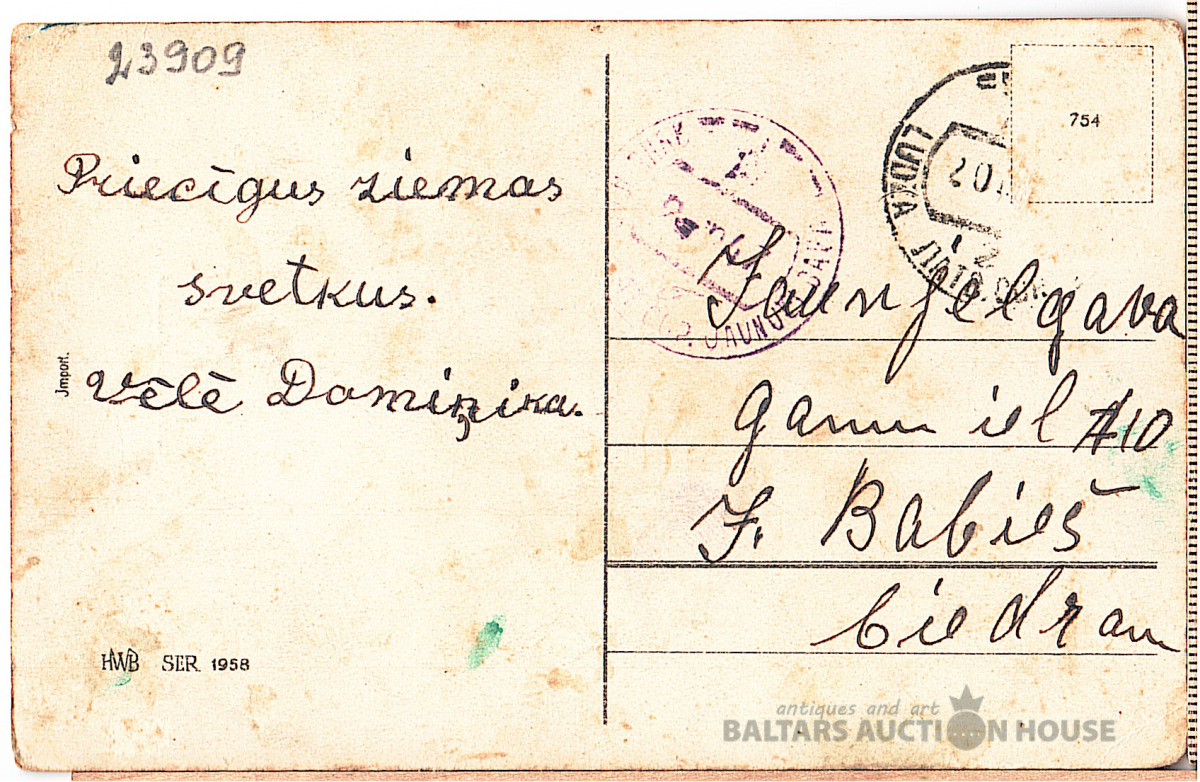 23909
Priecīgus ziemas
svetkus.
Vēlē Domiņika.
Jmport.
HWB SER. 1958
754
LUDZA
20
2
JAUN
Jaunjelgava
iel #10
J. Babieš
antiques and art
BALTARS AUCTION HOUSE